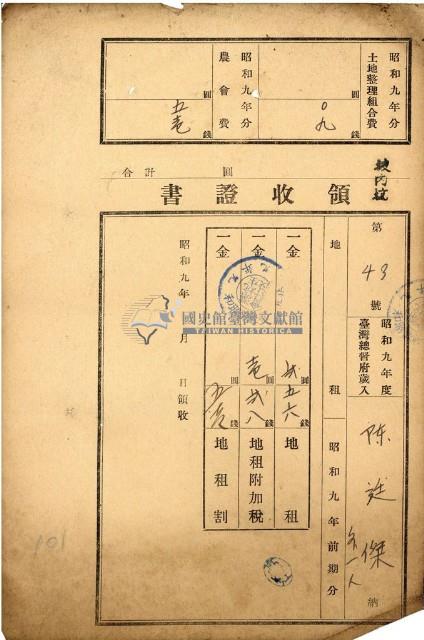 昭和九年分
土地整理組合費
圓
〇九錢
昭和九年分
農會費
圓
五壱錢
坡內坑
圓
合計
領收證書
第43號
昭和九年度
臺灣總督府歲入
陳廷傑
外一人
納
地租
昭和九年前期分
一金
圓
弐五六錢
地租
一金
壱圓
弐八錢
地租附加稅
一金
圓
錢
地租割
昭和九年
月
日領收
國史館臺灣文獻館
TAIWAN HISTORICA
101